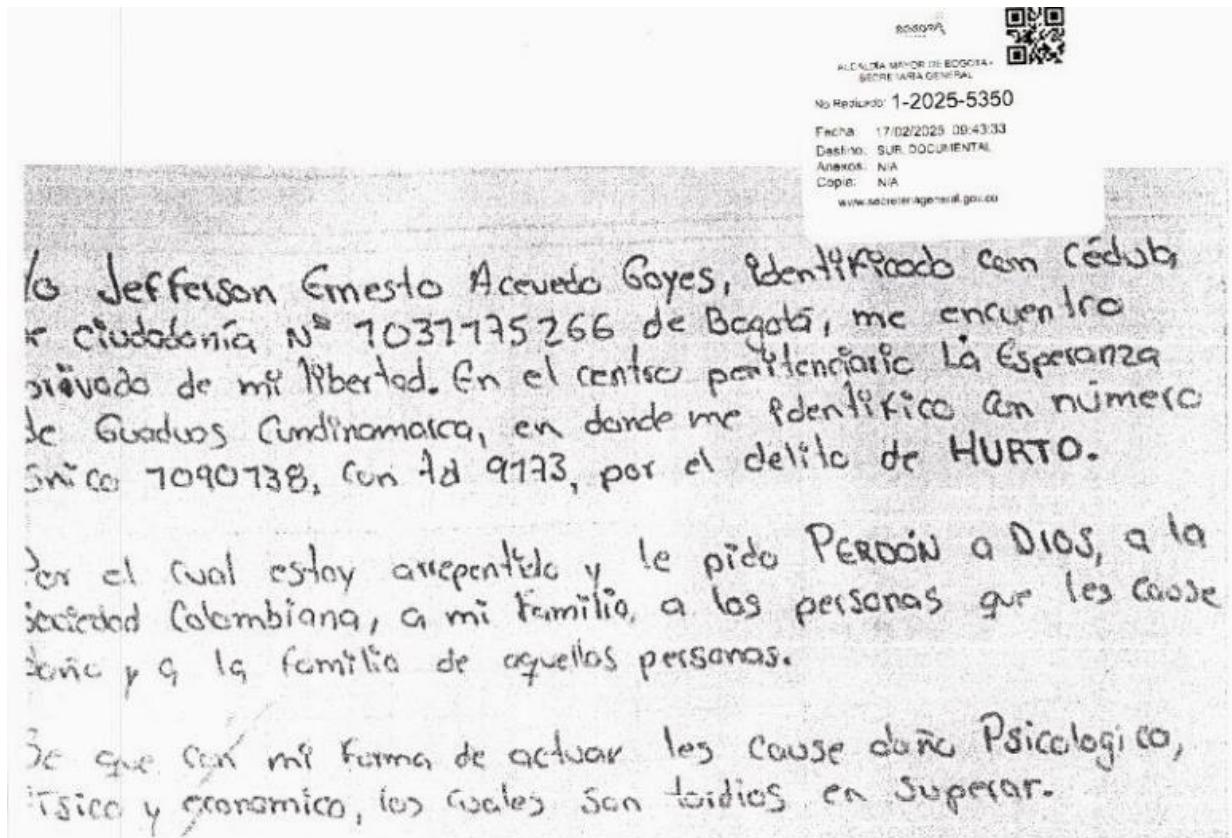 BOGOTÁ
ALCALDÍA MAYOR DE BOGOTA -
SECRETARIA GENERAL
No Radicado: 1-2025-5350
Fecha: 17/02/2025 09:43:33
Destino: SUB. DOCUMENTAL
Anexos: N/A
Copia: N/A
www.secretariageneral.gov.co
Yo Jefferson Ernesto Acevedo Goyes, identificado con Cédula
de Ciudadanía Nº 1031175266 de Bogotá, me encuentro
privado de mi libertad. En el centro penitenciario La Esperanza
de Guaduas Cundinamarca, en donde me identifico con número
único 1090138, con td 9173, por el delito de HURTO.
Por el cual estoy arrepentido y le pido PERDÓN a DIOS, a la
Sociedad Colombiana, a mi familia, a las personas que les cause
daño y a la familia de aquellas personas.
Se que con mi forma de actuar les cause daño Psicologico,
Fisico y economico, los cuales son tardios en superar.